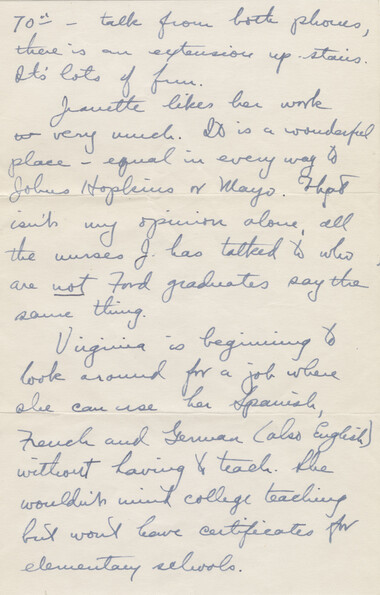 70¢ - talk from both phones,
there is an extension up-stairs.
It's lots of fun.
Jeanette likes her work
very much. It is a wonderful
place - equal in every way to
Johns Hopkins or Mayo. That
isn't my opinion alone, all
the nurses J. has talked to who
are not Ford graduates say the
same thing.
Virginia is beginning to
look around for a job where
she can use her Spanish,
French and German (also English)
without having to teach. She
wouldn't mind college teaching
but won't have certificates for
elementary schools.